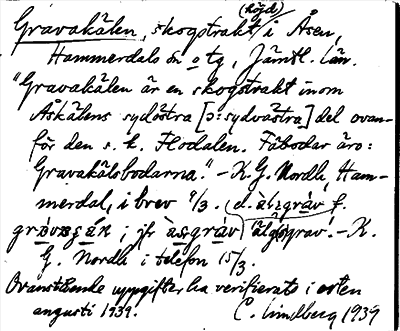 (höjd)
Gravakälen, skogstrakt i Åsen,
Hammerdals sn o tg, Jämtl. län.
"Gravakälen är en skogstrakt inom
Åskälens sydöstra [ɔ: sydvästra] del ovan-
för den s. k. Flodalen. Fäbodar äro:
Gravakälsbodarna." – K. G. Nordh, Ham-
merdal, i brev 9/3. (d.
; jfr
– K.
G. Nordh i telefon 15/3.
Ovanstående uppgifter ha verifierats i orten
augusti 1939. C. Lindberg 1939